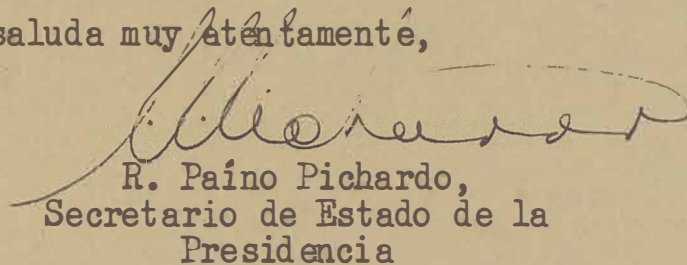 saluda muy atentamente,
R. Paíno Pichardo,
Secretario de Estado de la
Presidencia